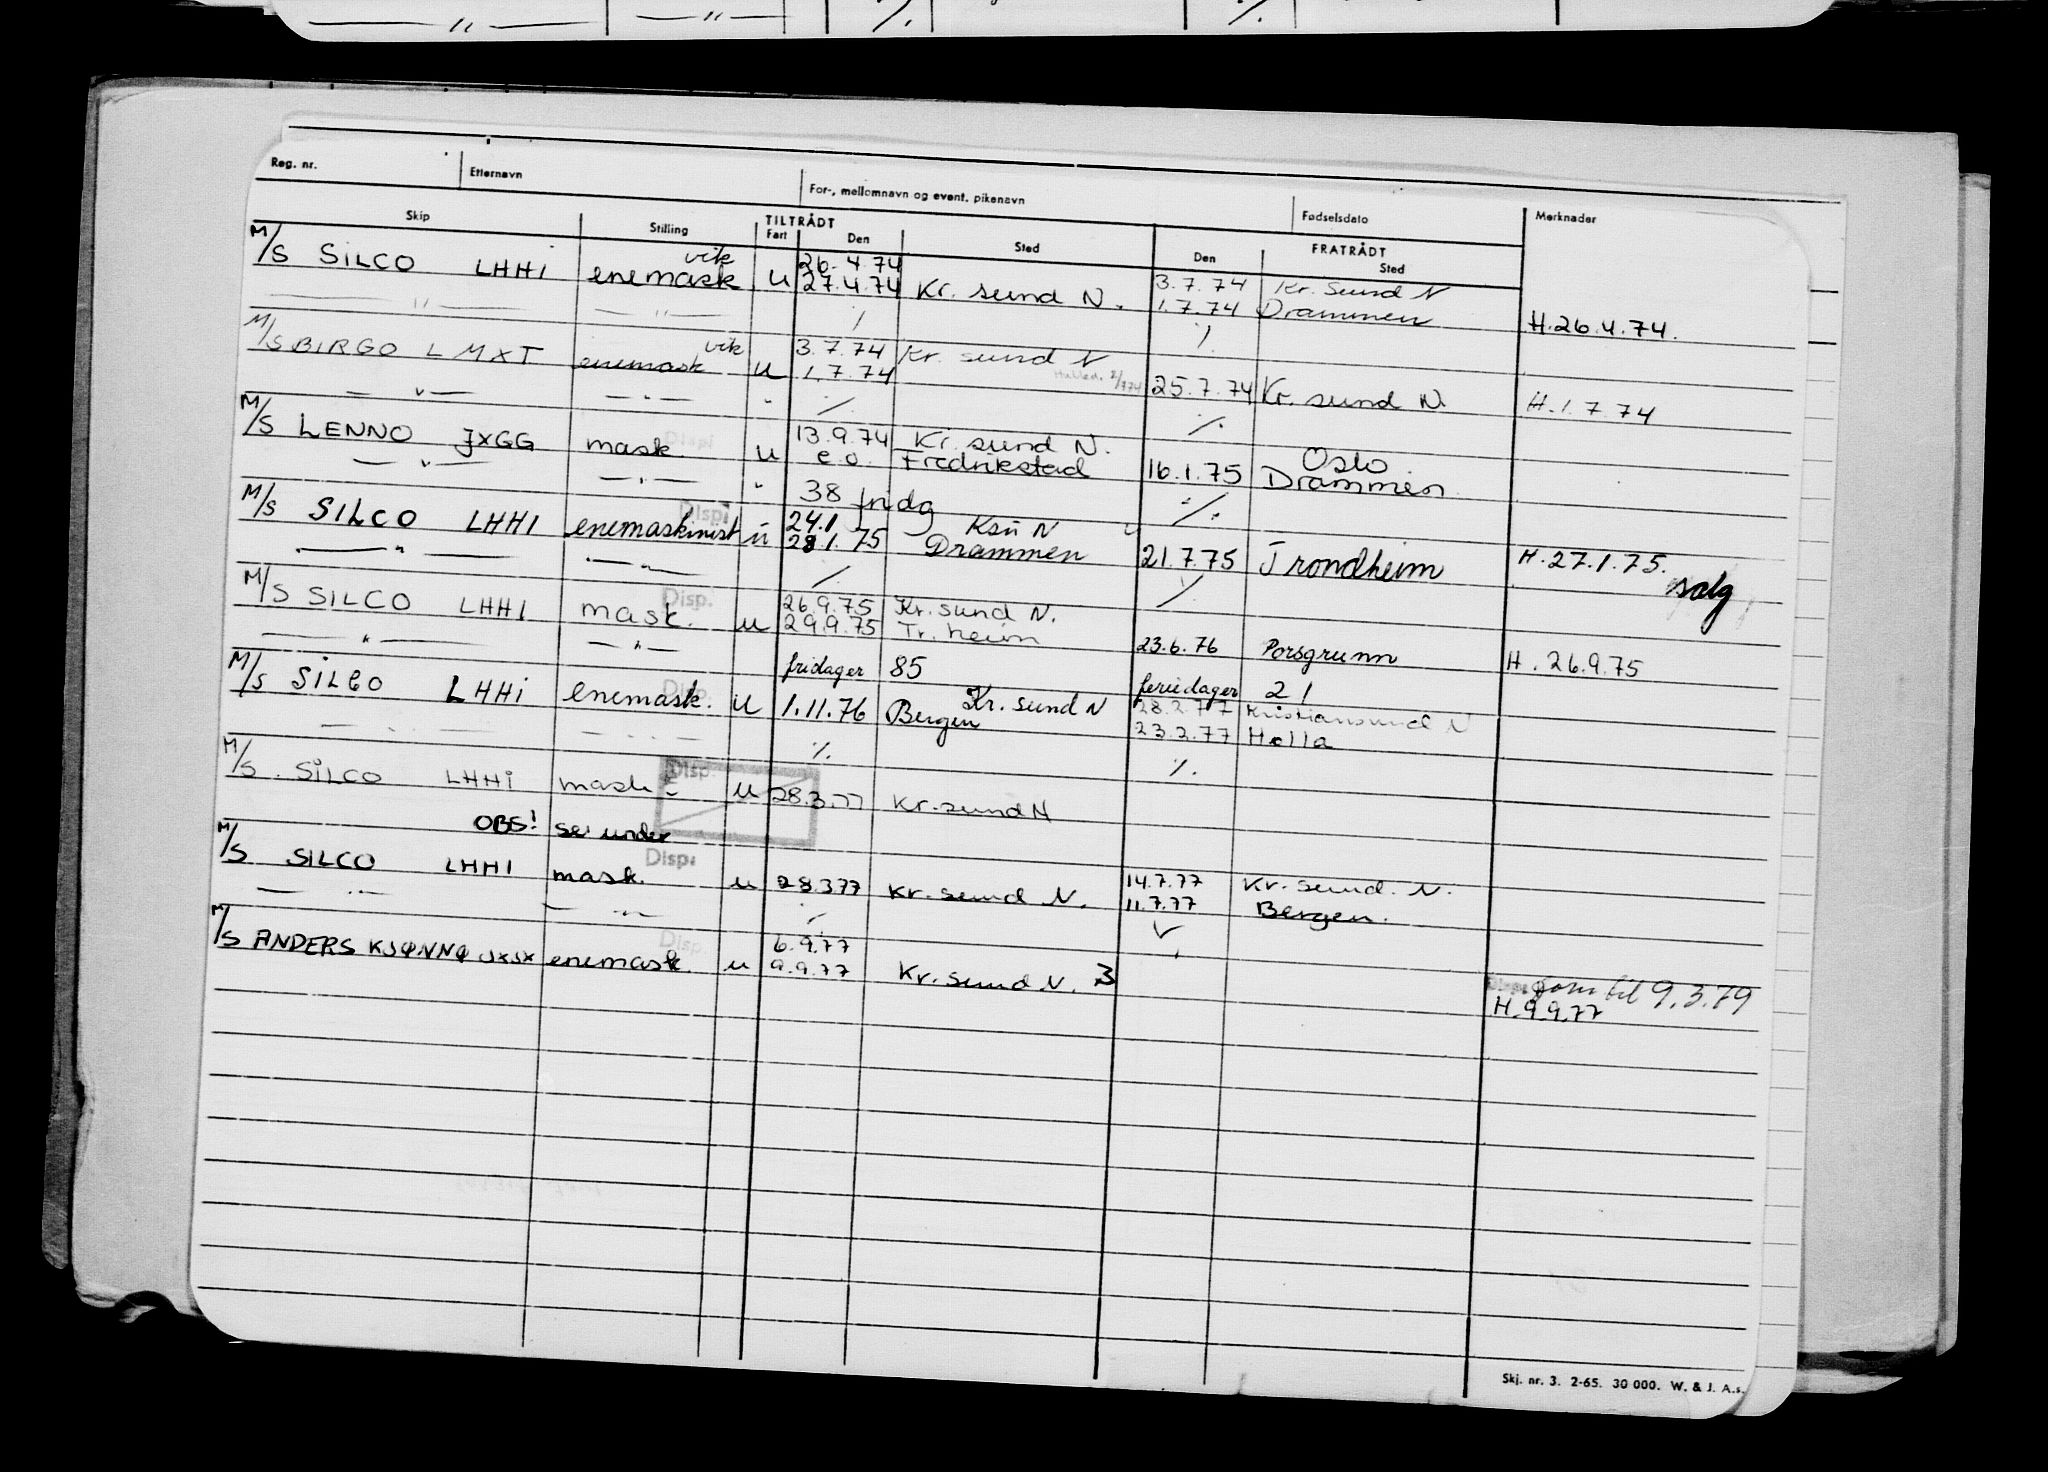 Reg. nr. Etternavn For-, mellomnavn og event. pikenavn Fødselsdato Merknader
Skip Stilling TILTRÅDT FRATRÅDT
Fart Den Sted Den Sted
vik 26.4.74 3.7.74 Kr. Sund N
M/S SILCO LHHI enemask u 27.4.74 Kr. sund N. 1.7.74 Drammen H.26.4.74.
— " — — " — / /.
vik 3.7.74 Kr. sund N
M/S BIRGO LMXT enemask u 1.7.74 25.7.74 Kr. sund N. H.1.7.74
— " — — " — " ./. ./.
Disp 13.9.74 Kr. sund N. Oslo
M/S LENNO JXGG mask. u e.o. Fredrikstad 16.1.75 Drammen
— " — — " — " 38 fridg ./.
Disp 24.1 Ksu N
M/S SILCO LHHI enemaskinist u 28.1.75 Drammen 21.7.75 Trondheim H.27.1.75. salg
— " — — " — ./. ./.
Disp. 26.9.75 Kr. sund N.
M/S SILCO LHHI mask. u 29.9.75 Tr. heim 23.6.76 Porsgrunn H.26.9.75
— " — — " — fridager 85 feriedager 21
Disp. Kr. sund N 28.2.77 Kristiansund N
M/S SILCO LHHI enemask. u 1.11.76 Bergen 23.2.77 Holla
— " — — " — ./. ./.
Disp.
M/S. SILCO LHHI mask u 28.3.77 Kr. sund N
OBS! se under
Disp. 14.7.77 Kr. sund. N.
M/S SILCO LHHI mask. u 28.3.77 Kr. sund N. 11.7.77 Bergen.
— " — — " — ./.
Disp. 6.9.77
M/S ANDERS KJØNNØ JXJX enemask. u 9.9.77 Kr. sund N. 3 Disp. til 9.3.79
H.9.9.77
Skj. nr. 3. 2-65. 30 000. W. & J. A.s.